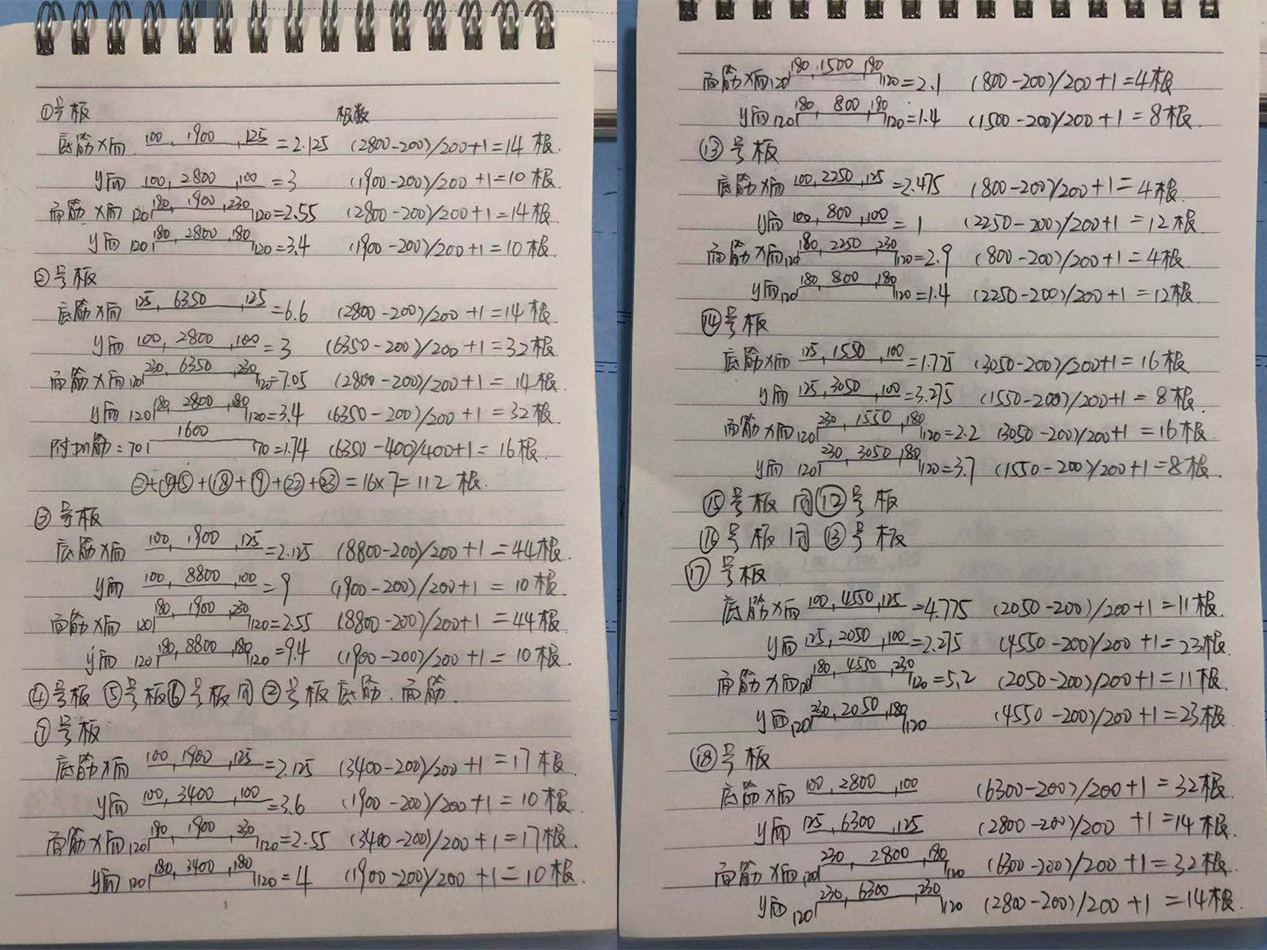 ①号板 根数
底筋X向 100, 1900, 125 =2.125 (2800-200)/200+1=14根.
y向 100, 2800, 100 =3 (1900-200)/200+1=10根.
面筋X向 120 180, 1900, 230 120=2.55 (2800-200)/200+1=14根
y向 120 180, 2800, 180 120=3.4 (1900-200)/200+1=10根.
②号板
底筋X向 125, 6350, 125 =6.6 (2800-200)/200+1=14根
y向 100, 2800, 100 =3 (6350-200)/200+1=32根
面筋X向 120 230, 6350, 230 120=7.05 (2800-200)/200+1=14根.
y向 120 180, 2800, 180 120=3.4 (6350-200)/200+1=32根
附加筋: 70 1600 70=1.74 (6350-400)/400+1=16根.
=16×7=112根.
③号板
底筋X向 100, 1900, 125 =2.125 (8800-200)/200+1=44根.
y向 100, 8800, 100 =9 (1900-200)/200+1=10根
面筋X向 120 180, 1900, 230 120=2.55 (8800-200)/200+1=44根
y向 120 180, 8800, 180 120=9.4 (1900-200)/200+1=10根.
④号板 ⑤号板 ⑥号板同②号板底筋.面筋.
⑦号板
底筋X向 100, 1900, 125 =2.125 (3400-200)/200+1=17根.
y向 100, 3400, 100 =3.6 (1900-200)/200+1=10根
面筋X向 120 180, 1900, 230 120=2.55 (3400-200)/200+1=17根
y向 120 180, 3400, 180 120=4 (1900-200)/200+1=10根
面筋X向 120 180, 1500, 180 120=2.1 (800-200)/200+1=4根
y向 120 180, 800, 180 120=1.4 (1500-200)/200+1=8根.
⑬号板
底筋X向 100, 2250, 125 =2.475 (800-200)/200+1=4根
y向 100, 800, 100 =1 (2250-200)/200+1=12根
面筋X向 120 180, 2250, 230 120=2.9 (800-200)/200+1=4根.
y向 120 180, 800, 180 120=1.4 (2250-200)/200+1=12根.
⑭号板
底筋X向 125, 1550, 100 =1.775 (3050-200)/200+1=16根
y向 125, 3050, 100 =3.275 (1550-200)/200+1=8根
面筋X向 120 230, 1550, 180 120=2.2 (3050-200)/200+1=16根
y向 120 230, 3050, 180 120=3.7 (1550-200)/200+1=8根
⑮号板同⑫号板
⑯号板同⑬号板
⑰号板
底筋X向 100, 4550, 125 =4.775 (2050-200)/200+1=11根
y向 125, 2050, 100 =2.275 (4550-200)/200+1=23根
面筋X向 120 180, 4550, 230 120=5.2 (2050-200)/200+1=11根
y向 120 230, 2050, 180 120 (4550-200)/200+1=23根
⑱号板
底筋X向 100, 2800, 100 (6300-200)/200+1=32根
y向 125, 6300, 125 (2800-200)/200+1=14根.
面筋X向 120 230, 2800, 180 120 (6300-200)/200+1=32根
y向 120 230, 6300, 230 120 (2800-200)/200+1=14根.